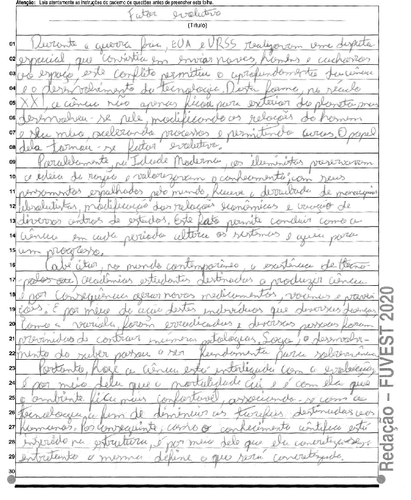 Atenção: Leia atentamente as instruções do caderno de questões antes de preencher esta folha.
Fator evolutivo
(Título)
01 Durante a guerra fria, EUA e URSS realizaram uma disputa
02 espacial que consistia em enviar naves, homens e cachorros
03 ao espaço, este conflito permitiu o aprofundamento da ciência
04 e o desenvolvimento da tecnologia. Desta forma, no século
05 XXI, a ciência não apenas ficou para exterior do planeta, mas
06 desenvolveu-se nele, modificando as relações do homem
07 e seu meio, acelerando processos e permitindo curas. O papel
08 dela tornou-se fator evolutivo.
09 Paralelamente, na Idade Moderna, os iluministas preservaram
10 a ideia de razão e valorizaram o conhecimento, com seus
11 pensamentos espalhados pelo mundo, houve a derrubada de monarquias
12 absolutistas, modificação das relações econômicas e criação de
13 diversos centros de estudos. Este fato permite concluir como a
14 ciência em cada período altera os sistemas e ajuda para
15 um progresso.
16 Cabe citar, no mundo contemporâneo, a existência de
17 acadêmicas estudantis destinadas a produzir ciência
18 e por consequência gerar novos medicamentos, vacinas e
19 É por meio da ação destes indivíduos que diversas doenças
20 como a varíola foram erradicadas e diversas pessoas foram
21 prevenidas de contrair inúmeras patologias. Logo, o desenvolvi-
22 mento do saber passou a ser fundamental para sobrevivência
23 Portanto, hoje a ciência está interligada com a evolução,
24 é por meio dela que a mortalidade cai e é com ela que
25 o ambiente fica mais confortável, associando-se com a
26 tecnologia a fim de diminuir as tarefas destinadas aos
27 humanos. Por conseguinte, como o conhecimento científico está
28 inserido na estrutura, é por meio dele que ela concretiza-se,
29 entretanto a mesma define o que será concretizado.
30
Redação – FUVEST 2020